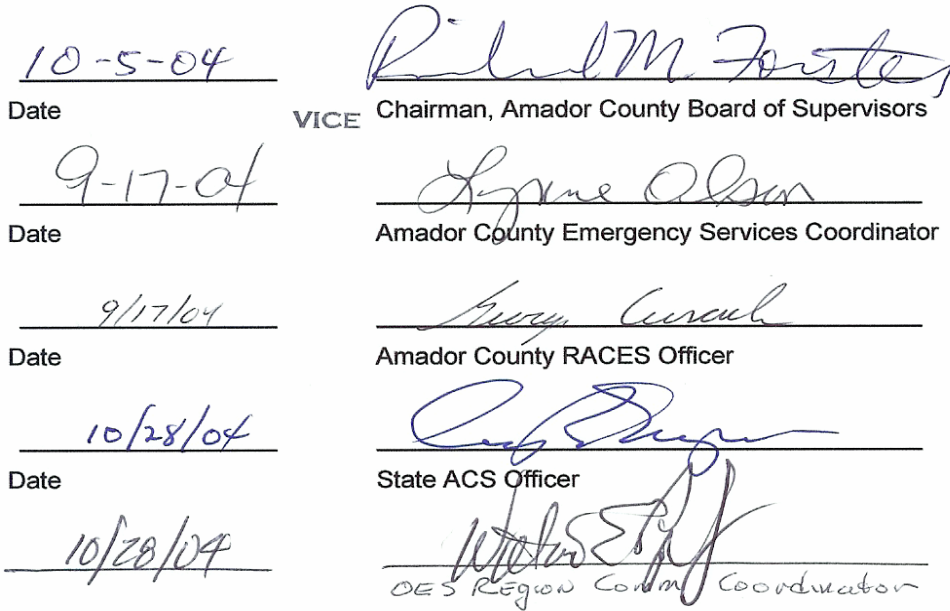 10-5-04 Richard M Forster
Date VICE Chairman, Amador County Board of Supervisors
9-17-04 Lynne Olson
Date Amador County Emergency Services Coordinator
9/17/04
Date Amador County RACES Officer
10/28/04
Date State ACS Officer
10/28/04
OES Region Comm Coordinator